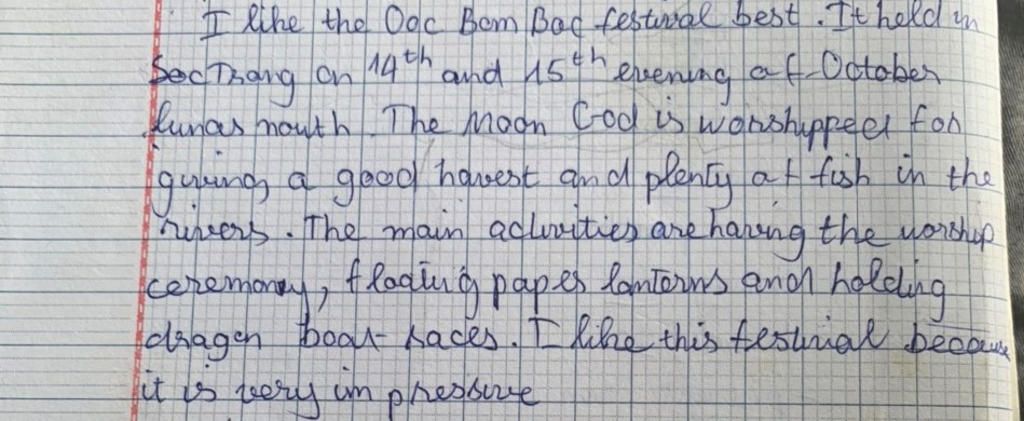 I like the Ooc Bom Boc festival best. It held in
Soc Trang on 14th and 15th evening of October
lunar month. The Moon God is worshipped for
giving a good harvest and plenty of fish in the
rivers. The main activities are having the worship
ceremony, floating paper lanterns and holding
dragon boat races. I like this festival because
it is very impressive